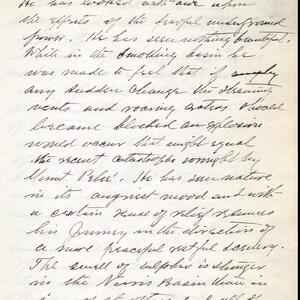 He has looked with awe upon
the effects of the fearful underground
power. He has seen nothing beautiful.
While in the smoking basin he
was made to feel that if
any sudden change the steaming
vents and roaring craters should
become blocked an explosion
would occur that might equal
the recent catastrophe wrought by
Mount Pelee'. He has seen nature
in its angriest mood and with
a certain sense of relief resumes
his journey in the direction of
a more peaceful restful scenery.
The smell of sulphur is stronger
in the Norris Basin than in